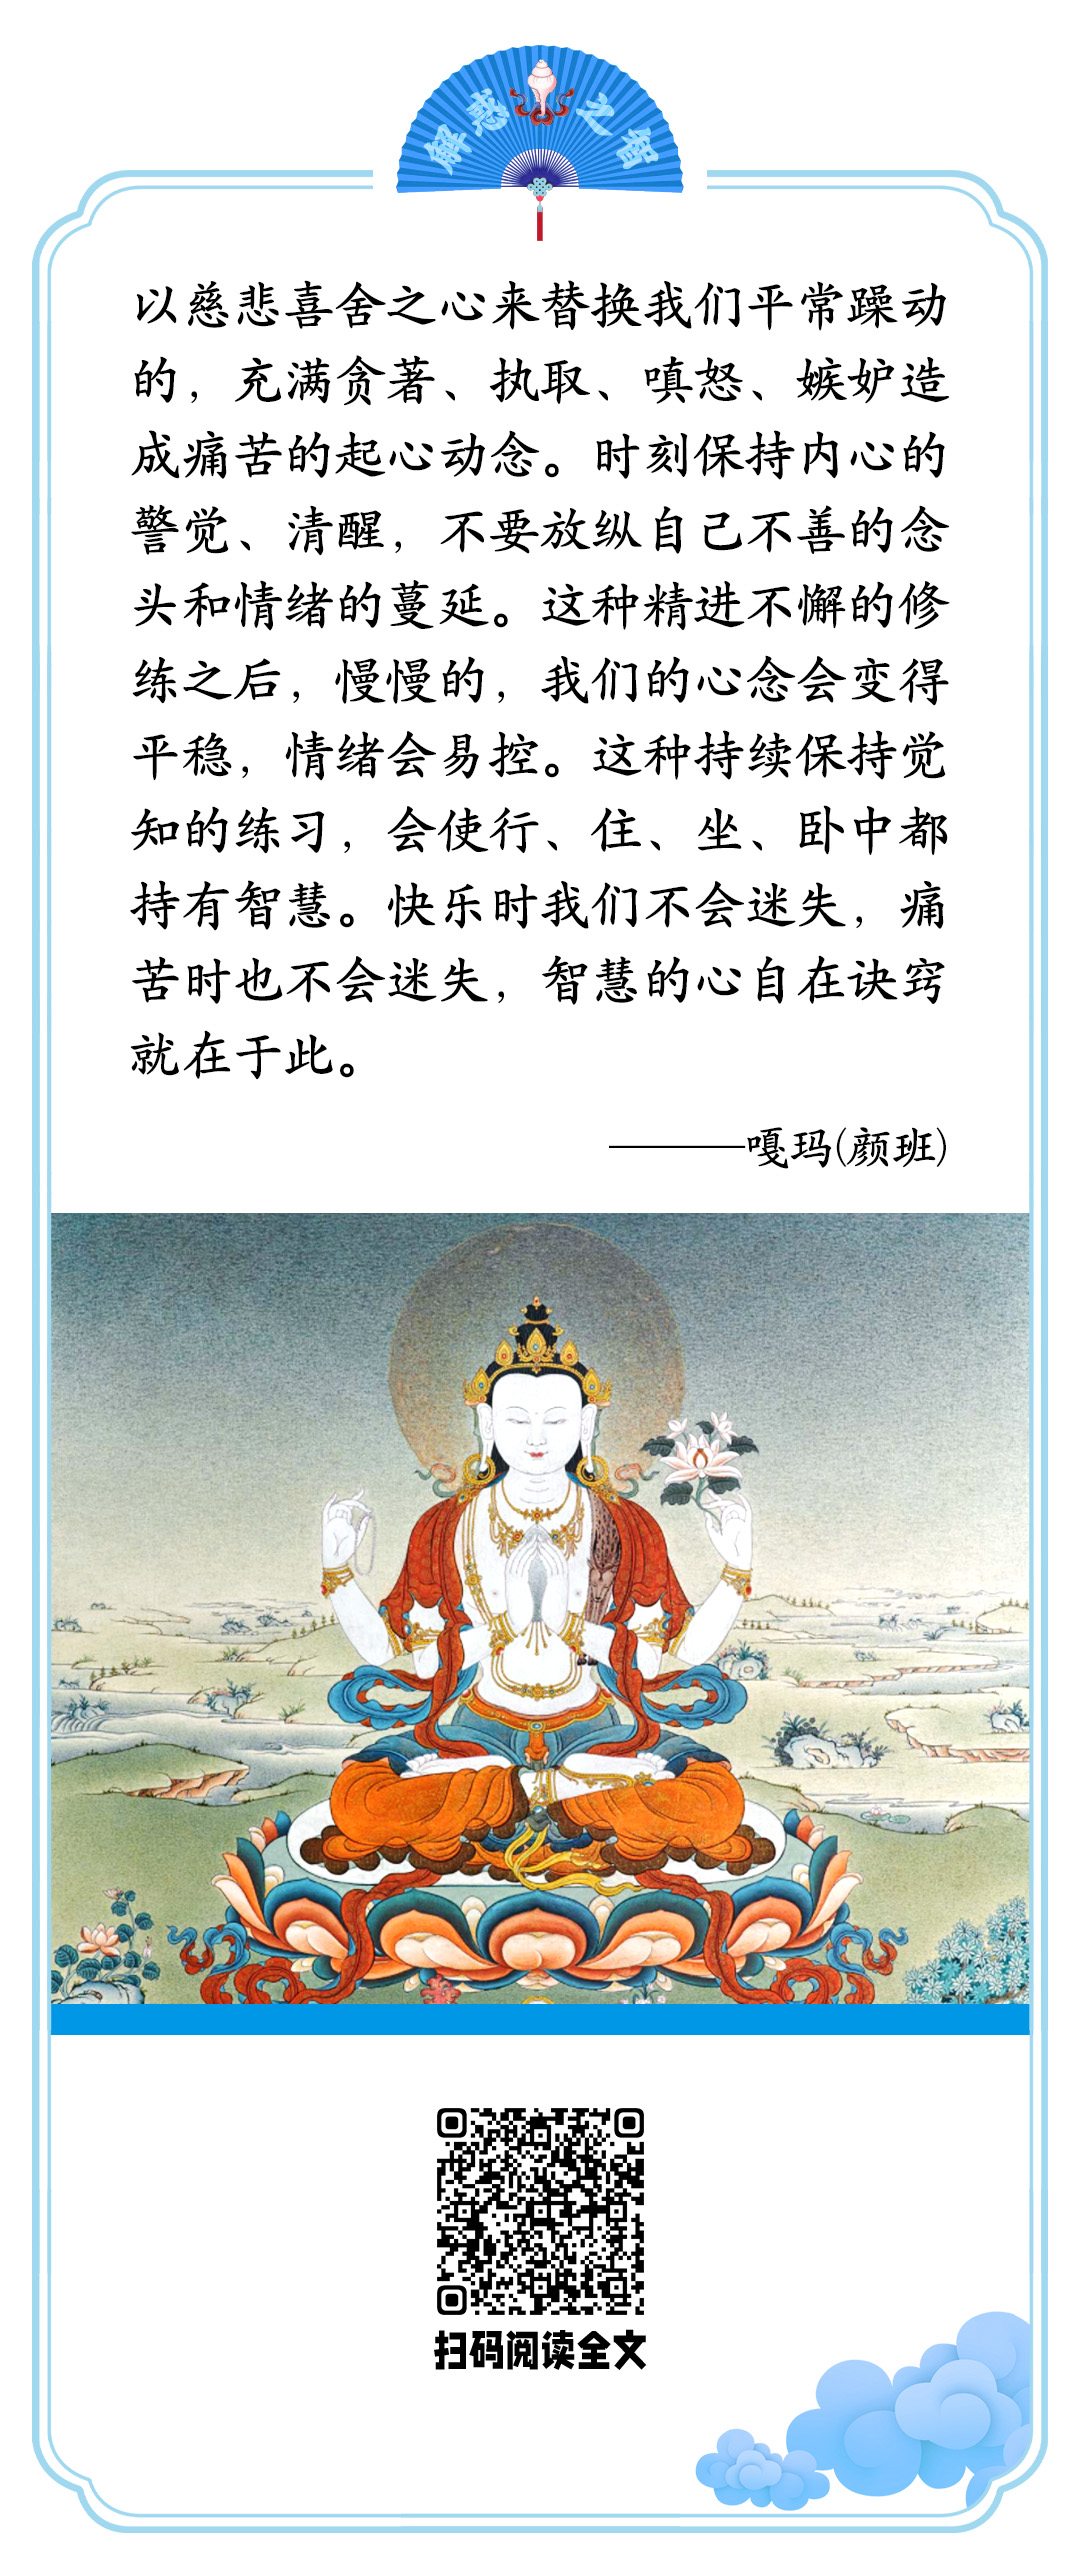 解惑之智
以慈悲喜舍之心来替换我们平常躁动
的，充满贪著、执取、嗔怒、嫉妒造
成痛苦的起心动念。时刻保持内心的
警觉、清醒，不要放纵自己不善的念
头和情绪的蔓延。这种精进不懈的修
练之后，慢慢的，我们的心念会变得
平稳，情绪会易控。这种持续保持觉
知的练习，会使行、住、坐、卧中都
持有智慧。快乐时我们不会迷失，痛
苦时也不会迷失，智慧的心自在诀窍
就在于此。
———嘎玛(颜班)
扫码阅读全文